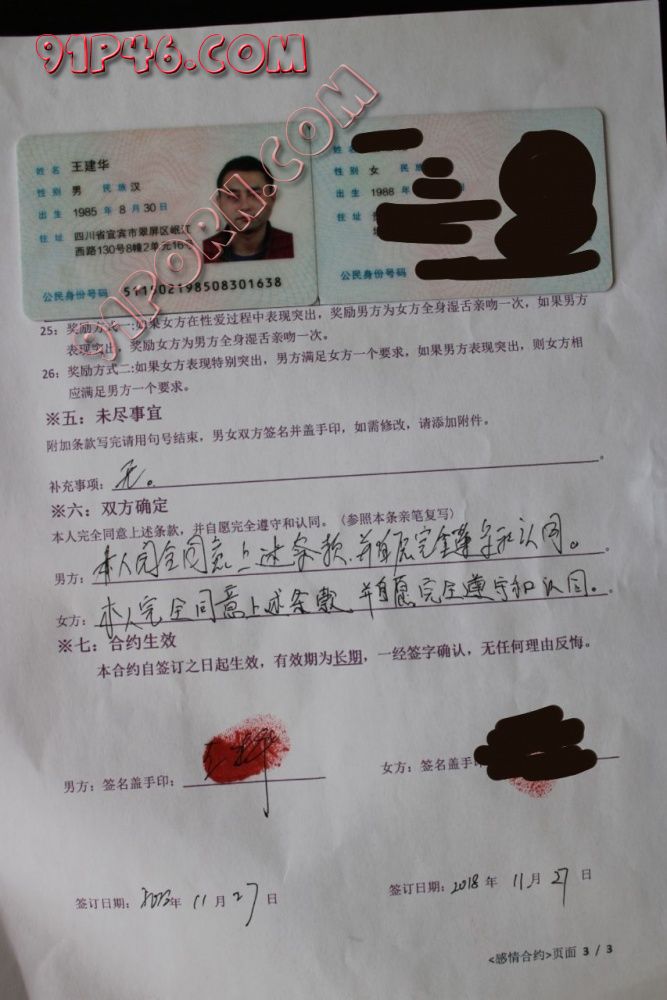 91P46.COM
91PORN.COM
姓名
性别 男 民族 汉
出生
住址
公民身份号码
性别 女 民族
出生
住址
公民身份号码
25: 奖励方式一:如果女方在性爱过程中表现突出，奖励男方为女方全身湿舌亲吻一次，如果男方
表现突出，奖励女方为男方全身湿舌亲吻一次。
26: 奖励方式二:如果女方表现特别突出，男方满足女方一个要求，如果男方表现突出，则女方相
应满足男方一个要求。
※五：未尽事宜
附加条款写完请用句号结束，男女双方签名并盖手印，如需修改，请添加附件。
补充事项：无。
※六：双方确定
本人完全同意上述条款，并自愿完全遵守和认同。（参照本条亲笔复写）
男方：本人完全同意上述条款，并自愿完全遵守和认同。
女方：本人完全同意上述条款，并自愿完全遵守和认同。
※七：合约生效
本合约自签订之日起生效，有效期为长期，一经签字确认，无任何理由反悔。
男方：签名盖手印：
女方：签名盖手
签订日期： 年 11 月 27 日
签订日期：2018 年 11 月 27 日
<感情合约>页面 3 / 3